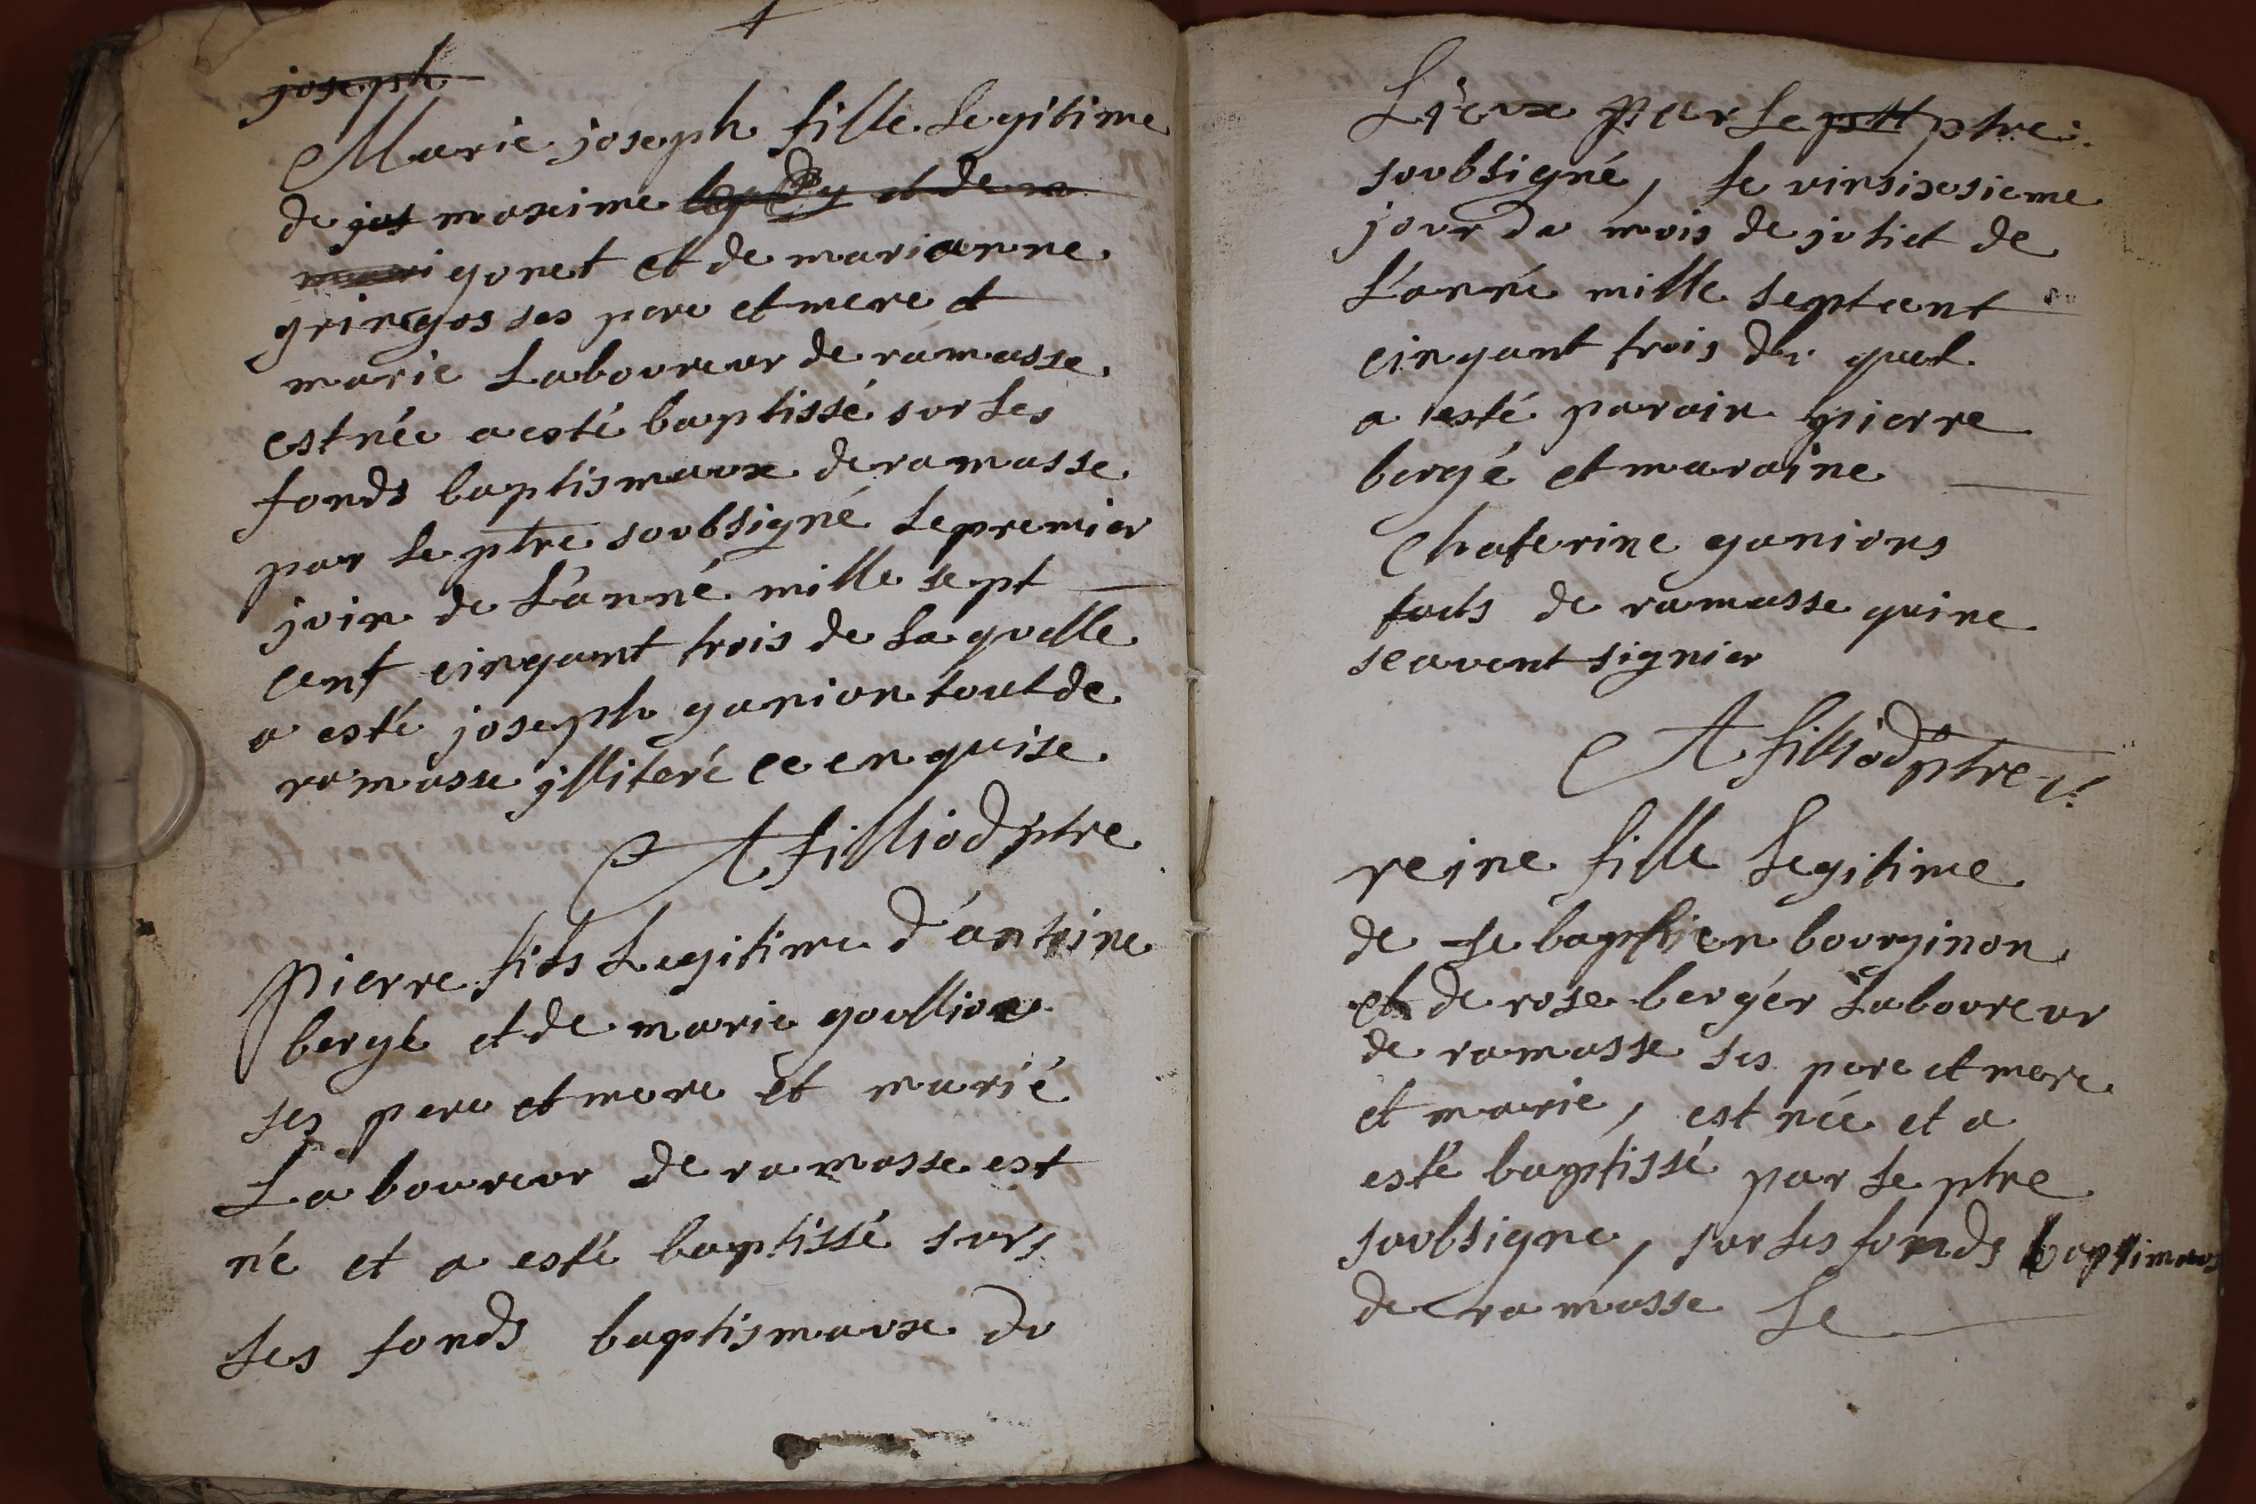 joseph
Marie joseph fille Legitime
de jos maxime et de m
mari gonet et de marianne
gringos ses pere et mere et
marie Laboureur de ramasse
est née a esté baptissé sur Les
fonds baptismaux de ramasse
par Le ptre soubsigné Le premier
juin de L'anné mille sept
cent cinqant trois de La quelle
a esté joseph ganion tout de
ramasse jlliteré ce enquise
A filliod ptre
pierre fils Legitime d'antoine
bergé et de marie goullion
ses pere et mere et marié
Laboureur de ramasse est
né et a esté baptissé surs
Les fonds baptismaux du
Lieux par Le ptre
soubsigné, Le vinsixesieme
jour du mois de juliet de
L'anné mille septcent
cinqant trois du quel
a esté parain pierre
bergé et maraine
Chaterine ganions
touts de ramasse qui ne
scavent signier
A filliod ptre
reine fille Legitime
de se baptien bourginon
et de rose bergér Laboureur
de ramasse ses pere et mere
et marie, est née et a
esté baptissé par Le ptre
soubsigne, sur Les fonds baptimaus
de ramasse Le